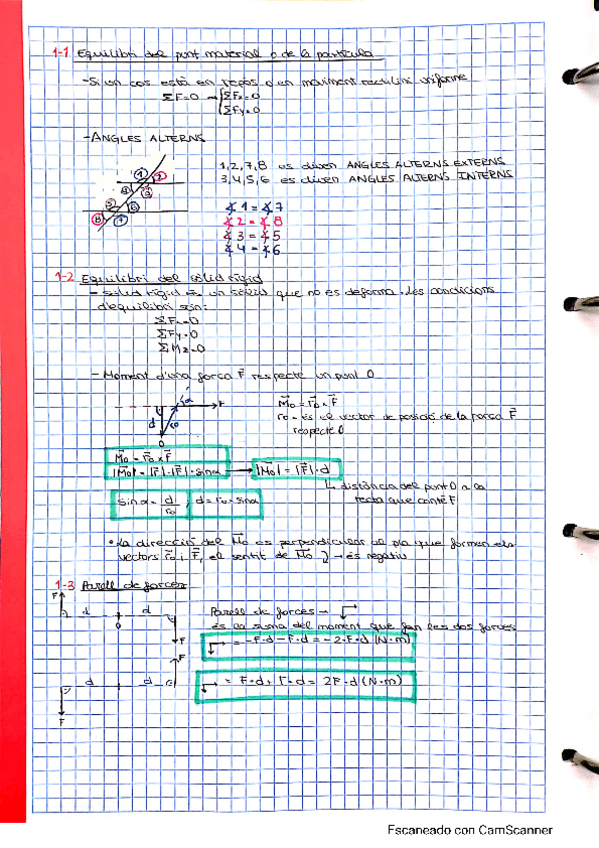 1-1 Equilibri del punt material o de la partícula
-Si un cos està en repòs o en moviment rectilini uniforme
ΣF=0 → {ΣFx=0
ΣFy=0
-ANGLES ALTERNS
1,2,7,8 es diuen ANGLES ALTERNS EXTERNS
3,4,5,6 es diuen ANGLES ALTERNS INTERNS
1 2
4 3
5 6
8 7
∡ 1 = ∡ 7
∡ 2 = ∡ 8
∡ 3 = ∡ 5
∡ 4 = ∡ 6
1-2 Equilibri del sòlid rígid
- sòlid rígid és un sòlid que no es deforma. Les condicions
d'equilibri són:
ΣFx=0
ΣFy=0
ΣMz=0
- Moment d'una força F⃗ respecte un punt O
α F
d r₀
O
M⃗o = r⃗o × F⃗
ro - és el vector de posició de la força F⃗
respecte O
M⃗o = r⃗o × F⃗
|M⃗o| = |r⃗|·|F⃗|·sinα → |M⃗o| = |F⃗|·d
↳ distància del punt O a la
recta que conté F
sinα = d/ro ; d = ro · sinα
• La direcció del M⃗o és perpendicular al pla que formen els
vectors r⃗o i F⃗, el sentit de M⃗o → és negatiu
1-3 Parell de forces
F d d
O
F
Parell de forces →
és la suma del moment que fan les dos forces
= -F·d - F·d = -2·F·d (N·m)
F
d d
F
= F·d + F·d = 2F·d (N·m)
Escaneado con CamScanner